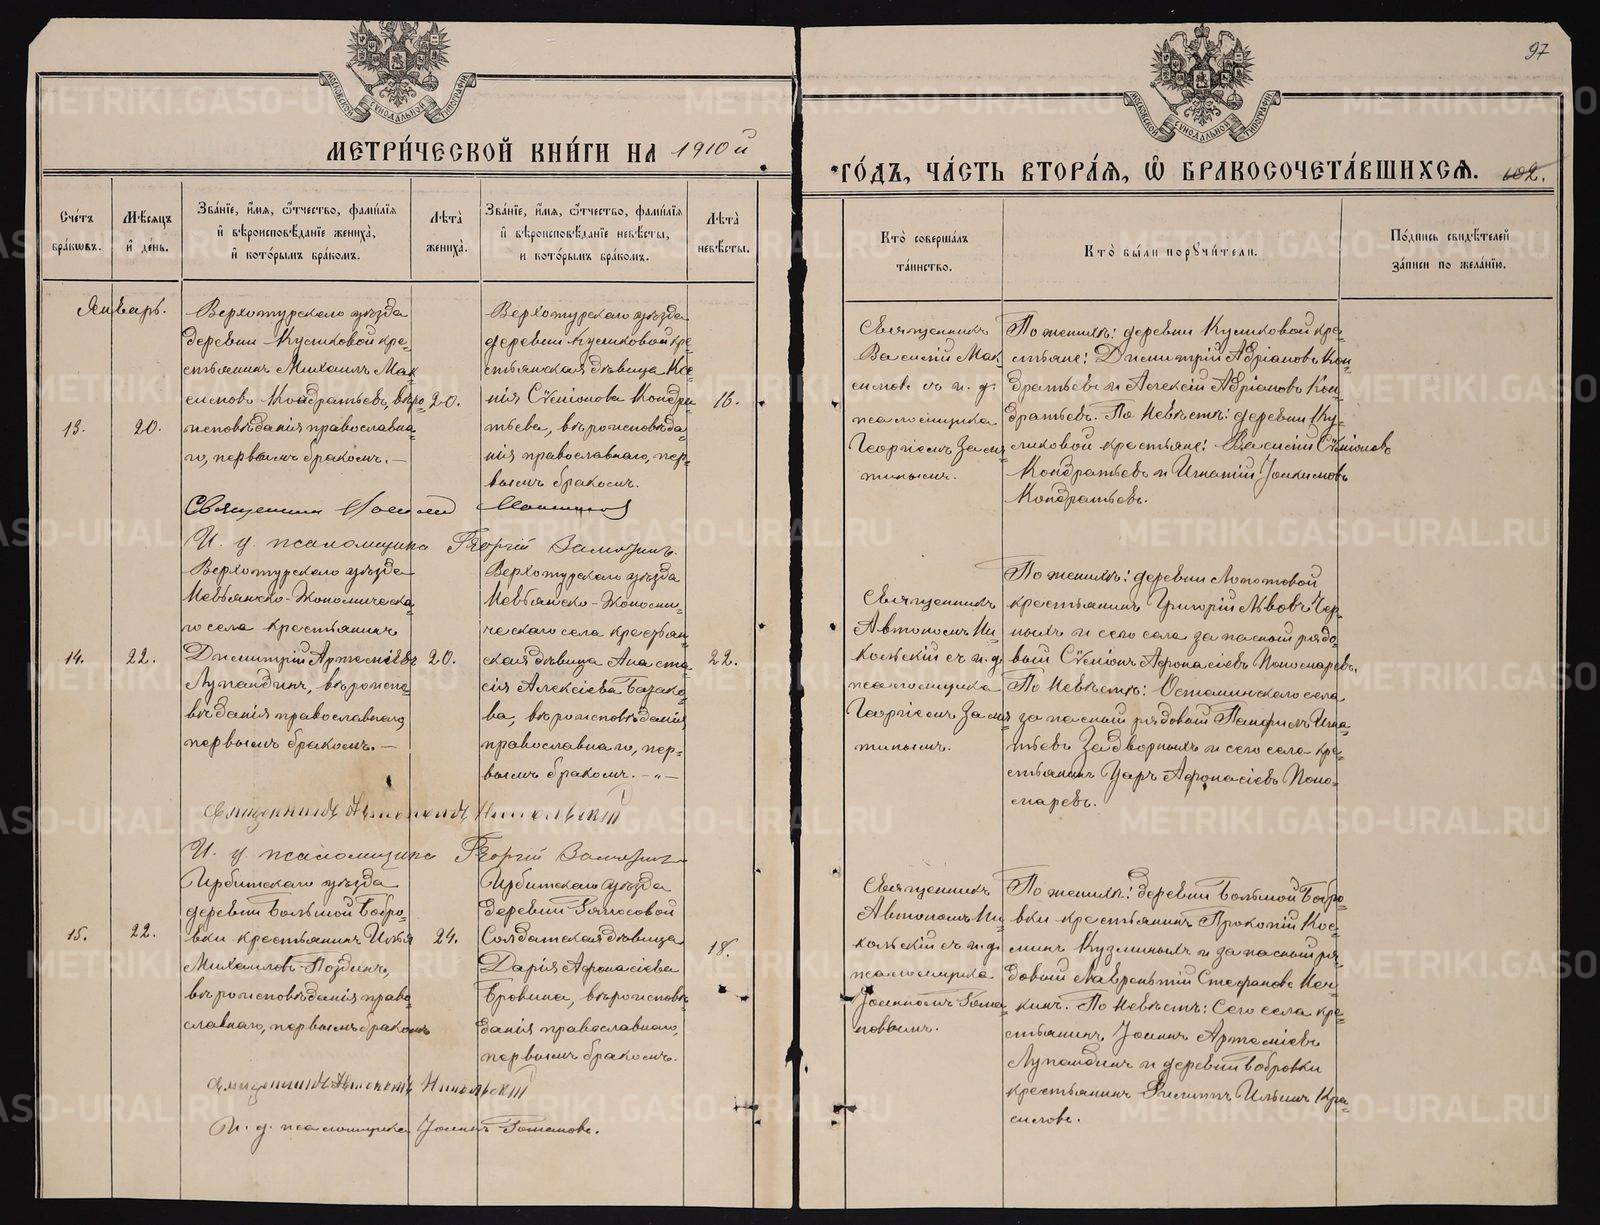 97
МОСКОВСКОЙ СѴНОДАЛЬНОЙ ТИПОГРАФІИ
МОСКОВСКОЙ СѴНОДАЛЬНОЙ ТИПОГРАФІИ
МЕТРИ́ЧЕСКОЙ КНИ́ГИ НА 1910й
ГО́ДЪ, ЧА́СТЬ ВТОРА́Я, Ѡ БРАКОСОЧЕТА́ВШИХСЯ. 102.
Сче́тъ бра́кѡвъ.
Мѣ́сяцъ и де́нь.
Зва́нїе, и́мя, ѻ́тчество, фами́лїя и́ вѣроисповѣ́данїе жениха̀, и́ кото́рымъ бра́комъ.
Лѣта̀ жениха̀.
Зва́нїе, и́мя, ѻ́тчество, фами́лїя и́ вѣроисповѣ́данїе невѣ́сты, и кото́рымъ бра́комъ.
Лѣта̀ невѣ́сты.
Кто̀ соверша́лъ та́инство.
Кто̀ бы́ли порꙋчи́тели.
По́дпись свидѣ́телей за́писи по жела́нїю.
Январь.
13.
20.
Верхотурскаго уѣзда
деревни Куликовой кре-
стьянинъ Михаилъ Мак-
симовъ Кондратьевъ, вѣро-
исповѣданія православна-
го, первымъ бракомъ. —
20.
Верхотурскаго уѣзда
деревни Куликовой кре-
стьянская дѣвица Ксе-
нія Сѵмеонова Кондра-
тьева, вѣроисповѣда-
нія православнаго, пер-
вымъ бракомъ.
16.
Священникъ
Василій Мак-
симовъ съ и. д.
псаломщика
Георгіемъ Замя-
тинымъ.
По женихѣ: деревни Куликовой кре-
стьяне: Димитрій Адріановъ Кон-
дратьевъ и Алексій Адріановъ Кон-
дратьевъ. По невѣстѣ: деревни Ку-
ликовой крестьяне: Василій Сѵмеоновъ
Кондратьевъ и Игнатій Іоакимовъ
Кондратьевъ.
Священникъ Василій Максимовъ
И. д. псаломщика Георгій Замятинъ.
14.
22.
Верхотурскаго уѣзда
Невьянско-Экономическа-
го села крестьянинъ
Димитрій Артеміевъ
Лупандинъ, вѣроиспо-
вѣданія православнаго,
первымъ бракомъ. —
20.
Верхотурскаго уѣзда
Невьянско-Экономи-
ческаго села крестьян-
ская дѣвица Анаста-
сія Алексіева
ва, вѣроисповѣданія
православнаго, пер-
вымъ бракомъ. — „ —
22.
Священникъ
Автономъ Ни-
кольскій съ и. д.
псаломщика
Георгіемъ Замя-
тинымъ.
По женихѣ: деревни Лопотовой
крестьянинъ Григорій Львовъ Чер-
ныхъ и сего села запасный рядо-
вый Сѵмеонъ Афонасіевъ Пономаревъ.
По невѣстѣ: Останинскаго села
запасный рядовый Панфилъ Игна-
тьевъ Задворныхъ и сего села кре-
стьянинъ Уаръ Афонасіевъ Поно-
маревъ.
Священникъ Автономъ Никольскій
И. д. псаломщика Георгій Замятинъ
15.
22.
Ирбитскаго уѣзда
деревни Большой Бобро-
вки крестьянинъ Илья
Михаиловъ Поздинъ,
вѣроисповѣданія право-
славнаго, первымъ бракомъ
24.
Ирбитскаго уѣзда
деревни
Солдатская дѣвица
Дарія Афонасіева
Бровина, вѣроисповѣ-
данія православнаго,
первымъ бракомъ.
18.
Священникъ
Автономъ Ни-
кольскій съ и. д.
псаломщика
Іоанномъ
По женихѣ: деревни Большой Бобро-
вки крестьянинъ Прокопій Кос-
минъ Кузминыхъ и запасный ря-
довый Лаврентій Стефановъ
кинъ. По невѣстѣ: Сего села кре-
стьянинъ Іоаннъ Артеміевъ
Лупандинъ и деревни Бобровки
крестьянинъ Филиппъ Ильинъ Кра-
силовъ.
Священникъ Автономъ Никольскій
И. д. псаломщика Іоаннъ
METRIKI.GASO-URAL.RU